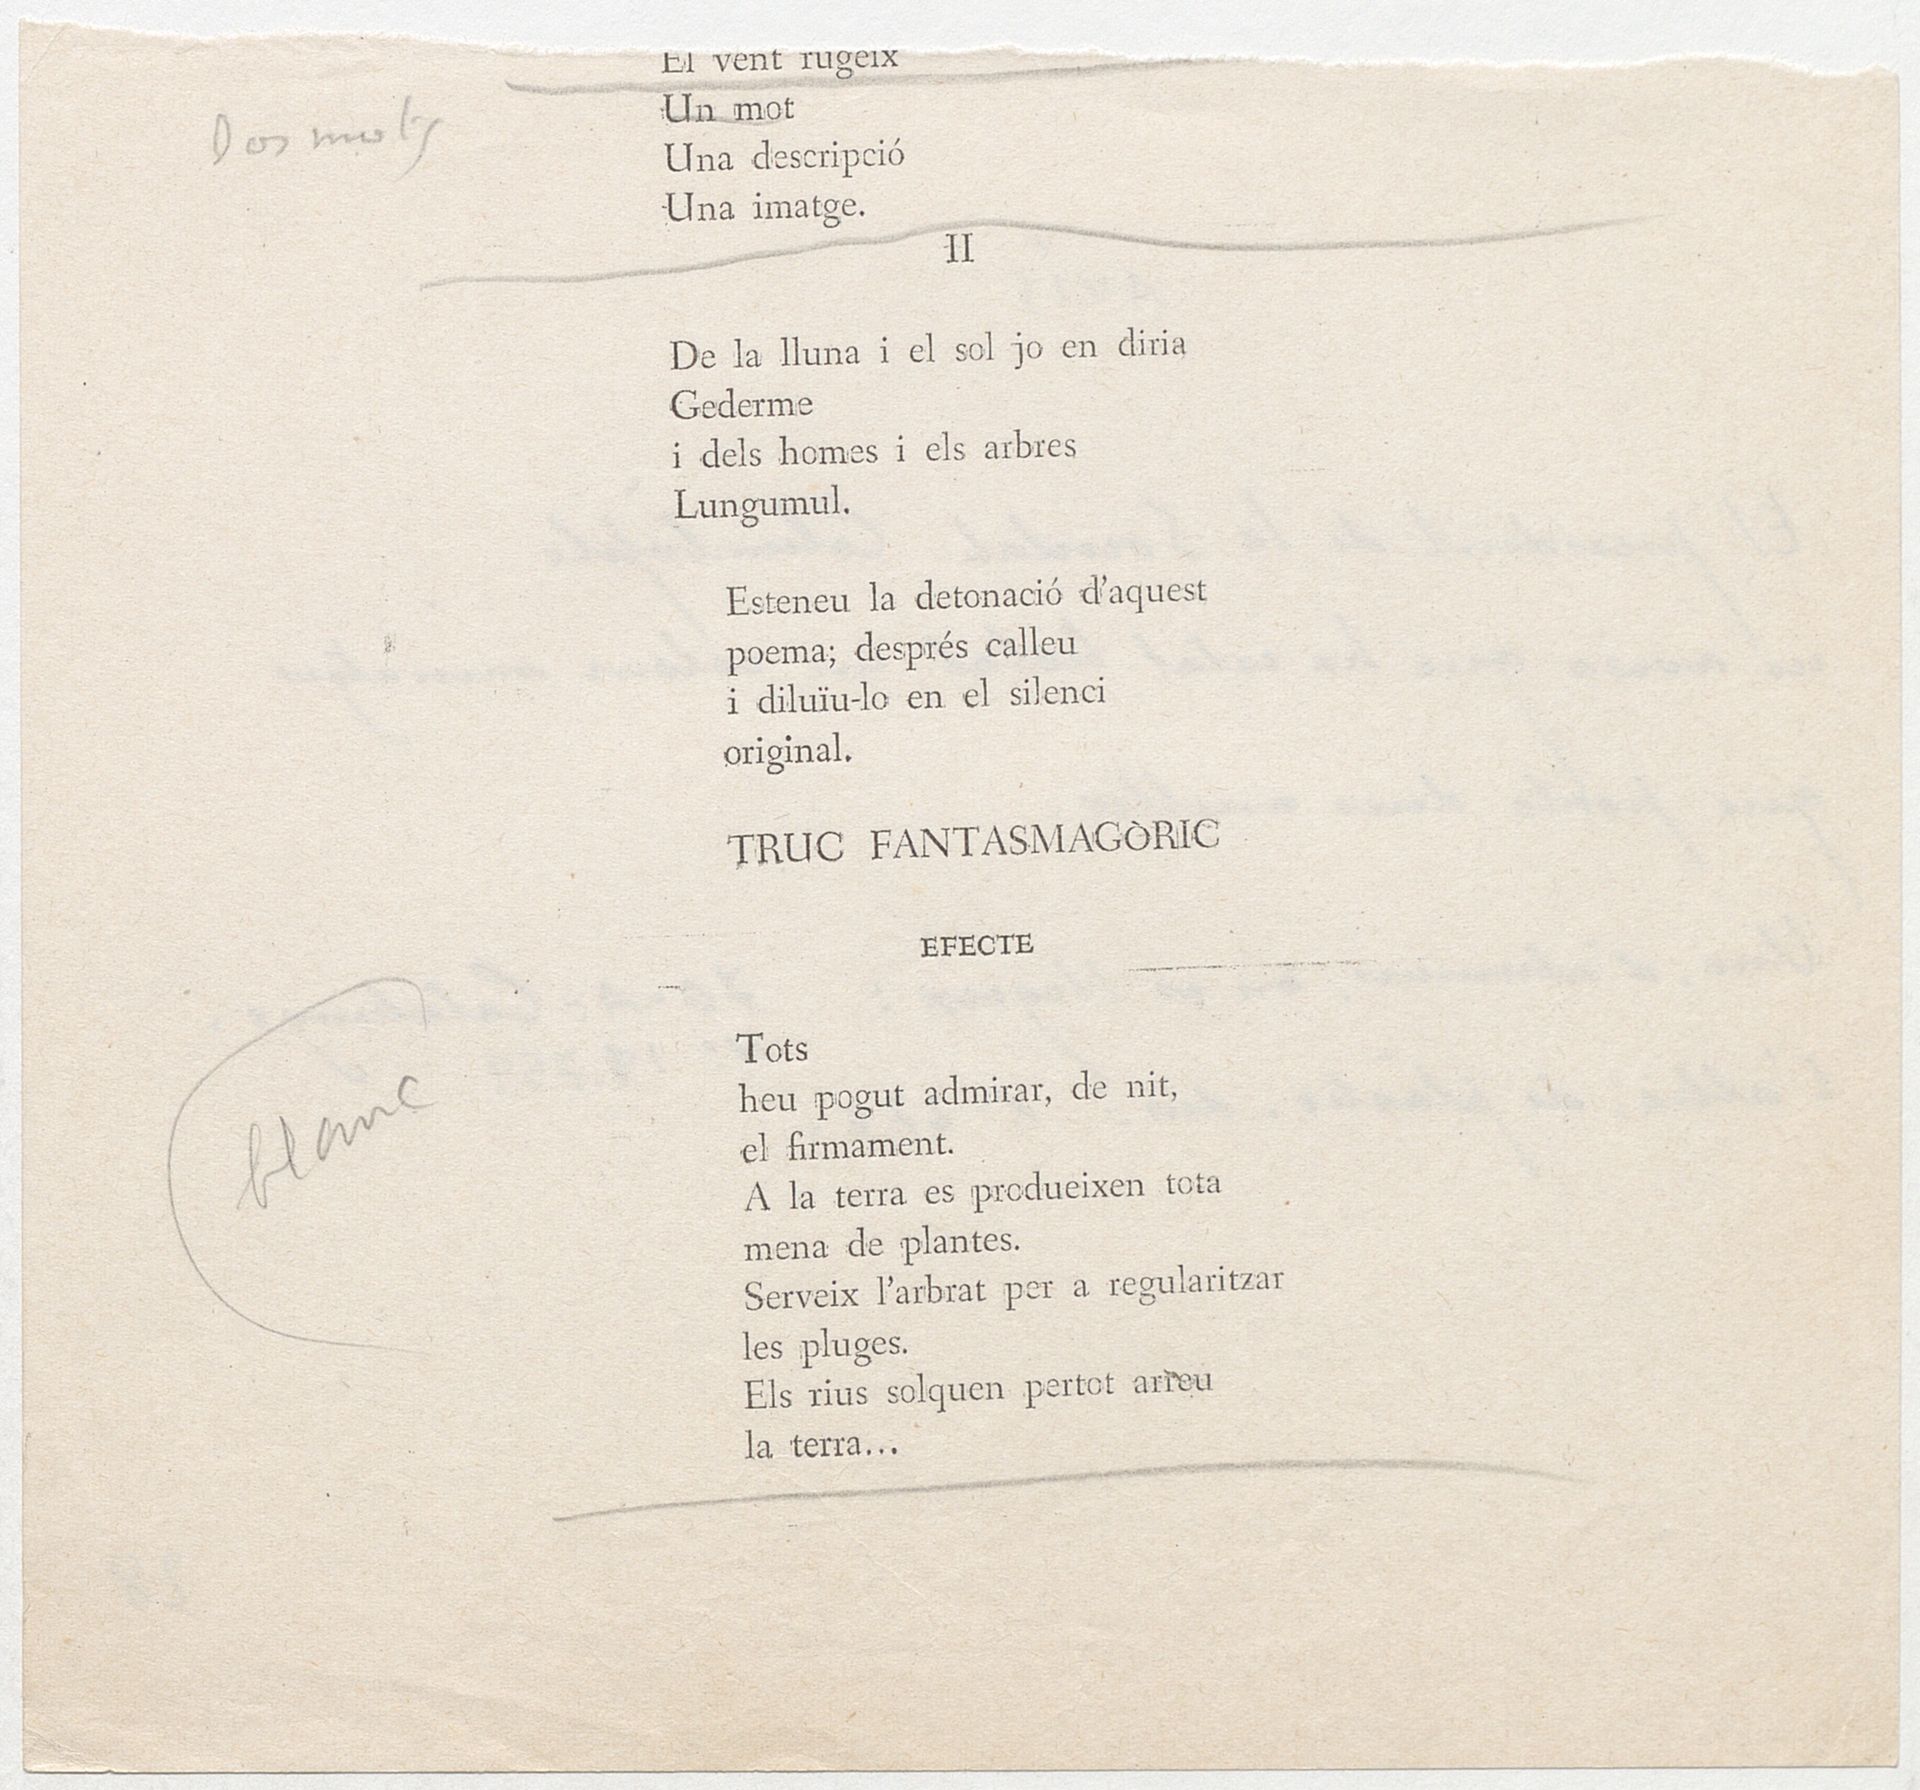 El vent rugeix
Dos mots
Un mot
Una descripció
Una imatge.
II
De la lluna i el sol jo en diria
Gederme
i dels homes i els arbres
Lungumul.
Esteneu la detonació d'aquest
poema; després calleu
i diluïu-lo en el silenci
original.
TRUC FANTASMAGÒRIC
EFECTE
blanc
Tots
heu pogut admirar, de nit,
el firmament.
A la terra es produeixen tota
mena de plantes.
Serveix l'arbrat per a regularitzar
les pluges.
Els rius solquen pertot arreu
la terra...